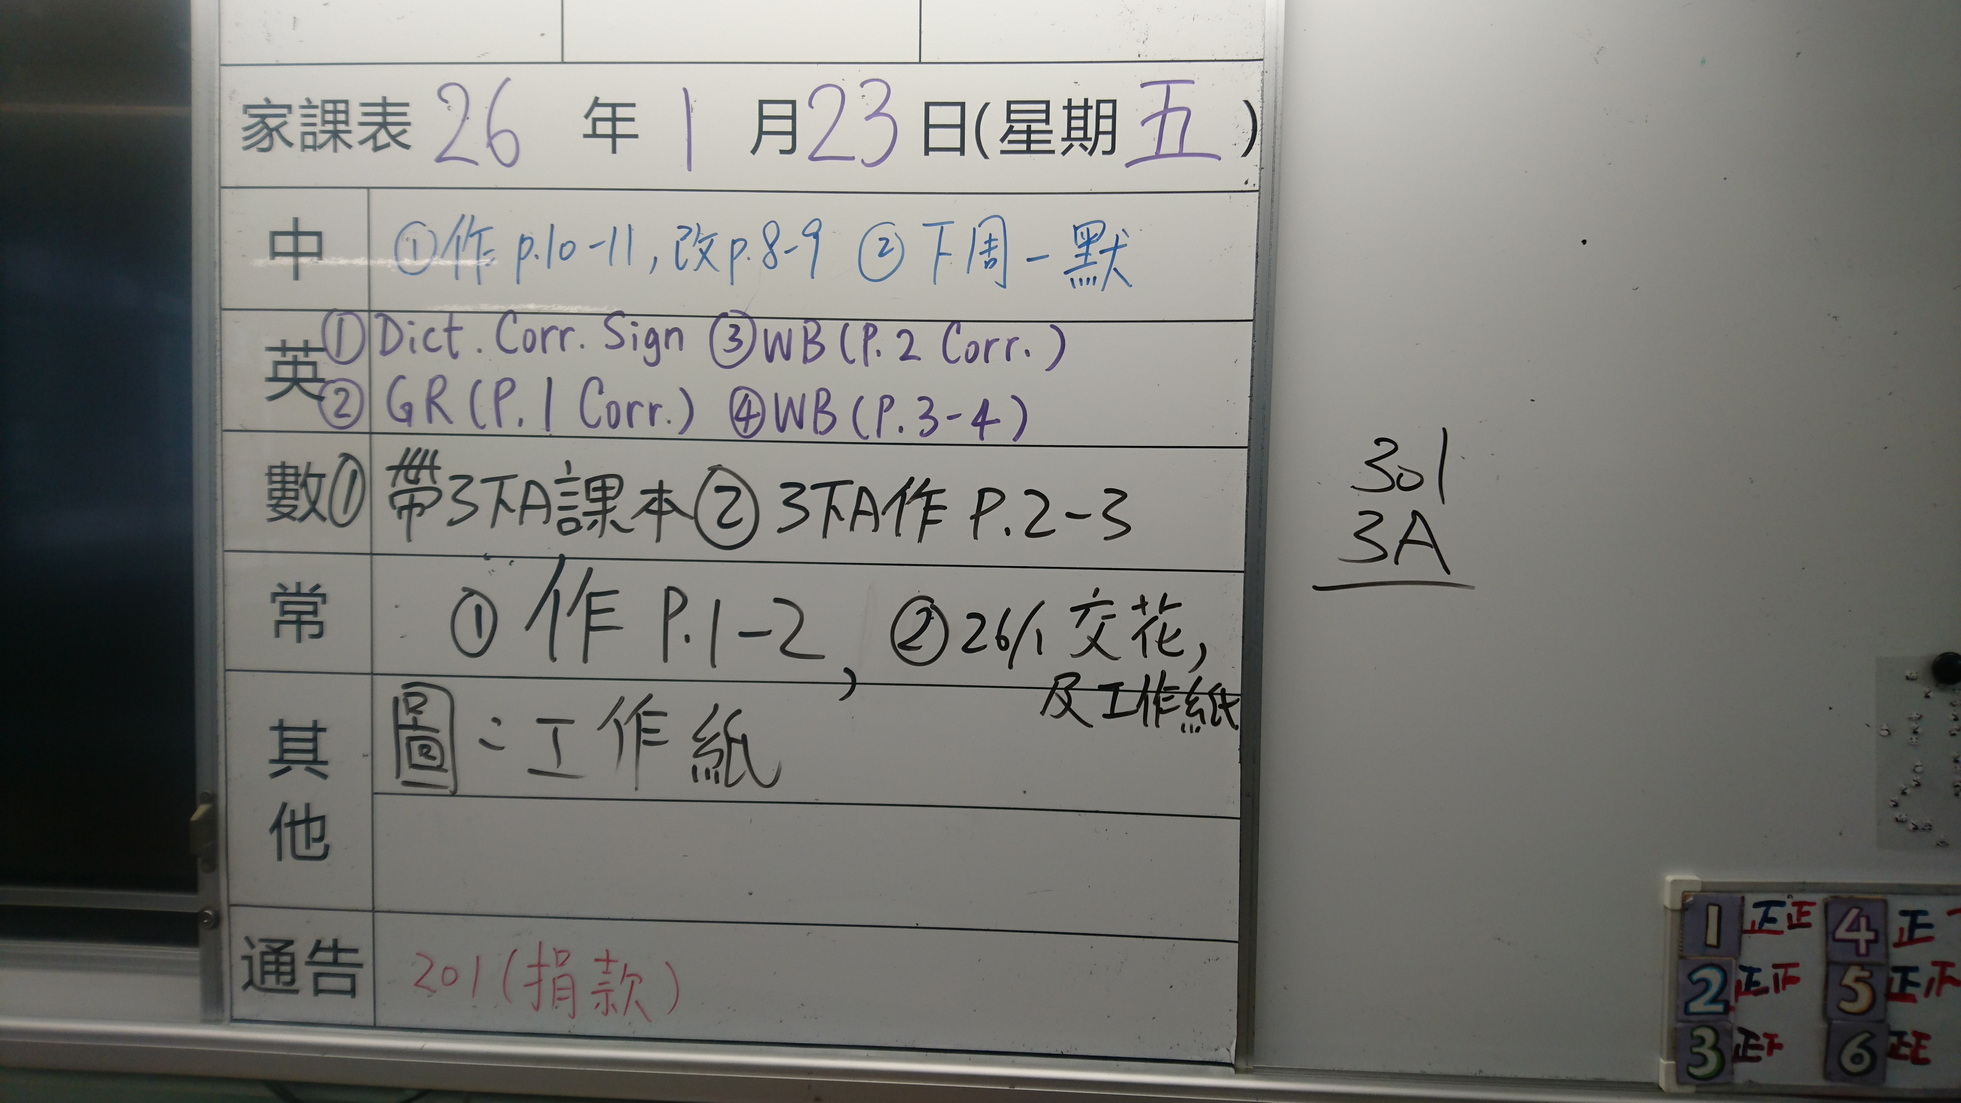 家課表 26 年 1 月 23 日(星期 五 )
中 ①作 p.10-11, 改p.8-9 ② 下周一默
英 ① Dict. Corr. Sign ③ WB (P.2 Corr.)
② GR (P.1 Corr.) ④ WB (P.3-4)
數 ① 帶3下A課本 ② 3下A作 P.2-3
常 ① 作 P.1-2, ② 26/1 交花,
及工作紙
其他 圖:工作紙
通告 201(捐款)
301
3A
1 正正 4 正
2 正 5 正
3 正 6 正